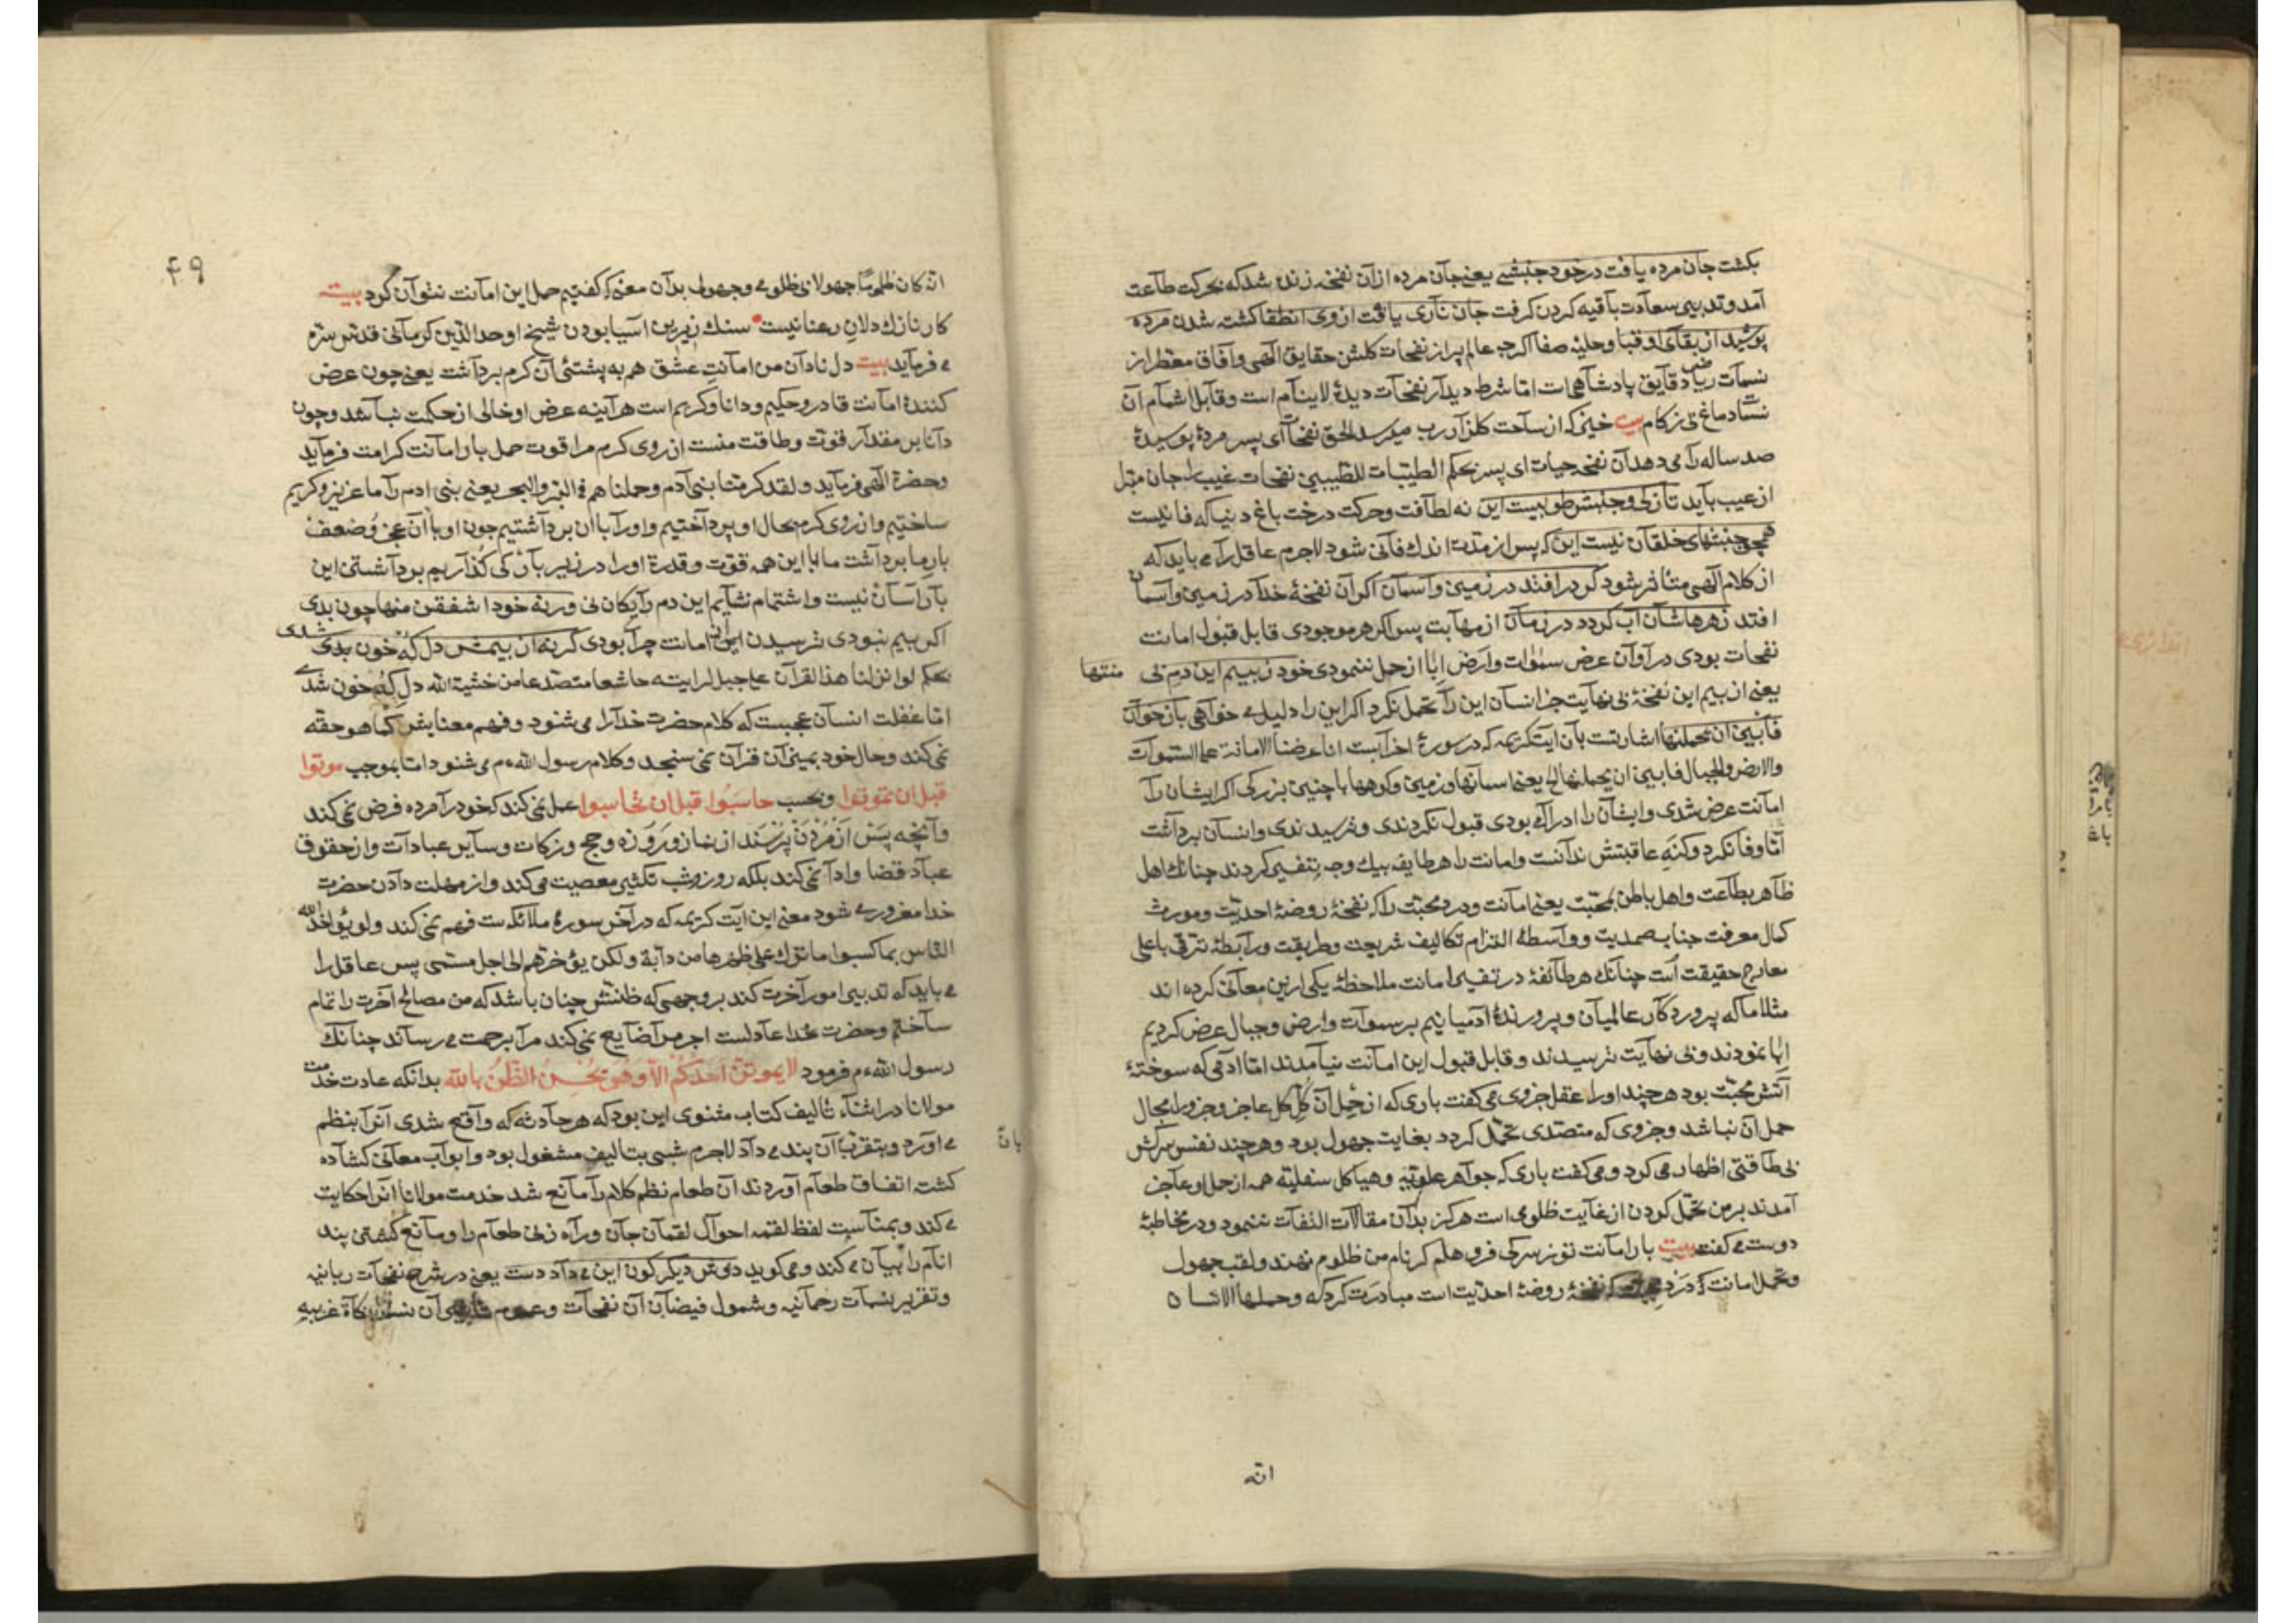 بکشت جان مرده یافت در خود جنبشی یعنی جان مرده از آن نفخه زنده شد که بحرکت طاعت
آمد و تدبیر سعادت باقیه کردن کرفت جان ناری یافت از وی انطفا کشته شدن مرده
پوشید از بقای او قبا و حلیهٔ صفا اکرچه عالم پر از نفحات کلشن حقایق الهی و آفاق معطر از
نسمات ریاض دقایق پادشاهی است اما شرط دیدار نفحات دیدهٔ لاینام است و قابل اشمام آن
دماغ بی زکام بیت که از ساحت کلزار رب میرسد الحق نفحات ای پسر مردهٔ پوسیدهٔ
صد ساله را می دهد آن نفخه حیات ای پسر بحکم الطیبات للطیبین نفحات غیب را جان مبرا
از عیب باید تازکی و جنبش طوبیست این نه لطافت و حرکت درخت باغ دنیا که فانیست
همچو جنبشهای خلقان نیست این که پس از مدت اندک فانی شود لاجرم عاقل را می باید که
از کلام الهی متأثر شود کر در افتد در زمین و آسمان اکر آن نفخهٔ خدا در زمین و آسمان
افتد زهرهاشان آب کردد در زمان از مهابت پس اکر هر موجودی قابل قبول امانت
نفحات بودی در آوان عرض سموات و ارض ابا از حمل ننمودی خود ز بیم این دم بی منتها
یعنی از بیم این نفخهٔ بی نهایت جز انسان این را تحمل نکرد اکر این را دلیل می خواهی باز خوان
فابین ان یحملنها اشارتست بآن آیت کریمه که در سورهٔ احزابست انا عرضنا الامانة علی السموات
والارض والجبال فابین ان یحملنها الخ یعنی اسمانها و زمین و کوهها با چنین بزرکی اکر ایشان را
امانت عرض شدی و ایشان را ادراک بودی قبول نکردندی و بترسیدندی و انسان برداشت
اما وفا نکرد و کنه عاقبتش ندانست و امانت را هر طایفه بیک وجه تفسیر کردند چنانک اهل
ظاهر بطاعت و اهل باطن بمحبت یعنی امانت و درد محبت را که نفخهٔ روضهٔ احدیت و مورث
کمال معرفت جناب صمدیت و واسطهٔ التزام تکالیف شریعت و طریقت و رابطهٔ ترقی باعلی
معارج حقیقت است چنانک هر طائفهٔ در تفسیر امانت ملاحظهٔ یکی ازین معانی کرده اند
مثلا ما که پروردکار عالمیان و پرورندهٔ آدمیانیم بر سموات و ارض و جبال عرض کردیم
ابا نمودند و بی نهایت بترسیدند و قابل قبول این امانت نیامدند اما آدمی که سوختهٔ
آتش محبت بود هر چند او را عقل جزوی می کفت باری که از حمل آن کل کل عاجز و جزو را مجال
حمل آن نباشد و جزوی که متصدی تحمل کردد بغایت جهول بود و هر چند نفس سرکش
بی طاقتی اظهار می کرد و می کفت باری که جواهر علویه و هیاکل سفلیه همه از حمل او عاجز
آمدند بر من تحمل کردن از غایت ظلومی است هرکز بدان مقالات التفات ننمود و در مخاطبهٔ
دوست می کفت بیت بار امانت تو ز سر کی فرو هلم کر نام من ظلوم نهند و لقب جهول
و تحمل امانت که نفخهٔ روضهٔ احدیت است مبادرت کرد که و حملها الانسان
انه
۴۹
انه کان ظلوما جهولا بی ظلومی و جهولی بدان معنی که کفتیم حمل این امانت نتوان کرد بیت
کار نازک دلان رعنا نیست سنک زیرین آسیا بودن شیخ اوحد الدین کرمانی قدس سره
می فرماید بیت دل نادان من امانت عشق هم به پشتی آن کرم برداشت یعنی چون عرض
کنندهٔ امانت قادر و حکیم و دانا و کریم است هر آینه عرض او خالی از حکمت نباشد و چون
دانا بر مقدار قوت و طاقت منست از روی کرم مرا قوت حمل بار امانت کرامت فرماید
و حضرة الهی فرماید و لقد کرمنا بنی آدم و حملناهم فی البر و البحر یعنی بنی ادم را ما عزیز و کریم
ساختیم و از روی کرم بحال او پرداختیم و او را بان برداشتیم چون او با آن عجز و ضعف
بار ما برداشت ما با این همه قوت و قدرة او را در زیر بار کی کذاریم برداشتن این
بار آسان نیست و اشتمام نشایم این دم رایکان نی ورنه خود اشفقن منها چون بدی
اکر بیم نبودی ترسیدن ایشان از امانت چرا بودی کرنه از بیمش دل که خون شدی
بحکم لو انزلنا هذا القرآن علی جبل لرایته خاشعا متصدعا من خشیة الله دل که خون شدی
اما غفلت انسان عجبست که کلام حضرت خدا را می شنود و فهم معنایش کما هو حقه
نمی کند و حال خود بمیزان قرآن نمی سنجد و کلام رسول الله م می شنود اما بموجب موتوا
قبل ان تموتوا و بحسب حاسبوا قبل ان تحاسبوا عمل نمی کند که خود را مرده فرض نمی کند
و آنچه پس از مردن پرسند از نماز و روزه و حج و زکات و سایر عبادات و از حقوق
عباد قضا و ادا نمی کند بلکه روز و شب تکثیر معصیت می کند و از مهلت دادن حضرت
خدا مغرور می شود معنی این آیت کریمه که در آخر سورهٔ ملائکه ست فهم نمی کند و لو یؤاخذ الله
الناس بما کسبوا ما ترک علی ظهرها من دابة و لکن یؤخرهم الی اجل مسمی پس عاقل را
می باید که تدبیر امور آخرت کند بر وجهی که ظنش چنان باشد که من مصالح آخرت را تمام
ساختم و حضرت خدا عادلست اجر مرا ضایع نمی کند مرا برحمت می رساند چنانک
رسول الله م فرمود لا یموتن احدکم الا و هو یحسن الظن بالله بدانکه عادت خدمت
مولانا در اثناء تالیف کتاب مثنوی این بود که هر حادثه که واقع شدی آنرا بنظم
می آورد و بتقریب آن پند می داد لاجرم شبی بتالیف مشغول بود و ابواب معانی کشاده
کشته اتفاق طعام آوردند آن طعام نظم کلام را مانع شد خدمت مولانا آنرا حکایت
می کند و بمناسبت لفظ لقمه احوال لقمان جان و راه زنی طعام را و مانع کشتن پند
انام را بیان می کند و می کوید دوش دیکر کون این می داد دست یعنی در شرح نفحات ربانیه
و تقریر نسمات رحمانیه و شمول فیضان آن نفحات و عموم آن